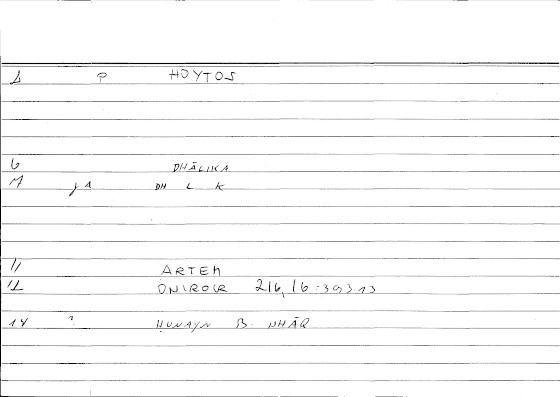 1 P HOYTOS
6 DHĀLIKA
7 JA DH L K
11 ARTEM
12 ONIROCR 216,16 - 393.13
14 ? ḤUNAYN B. ISHĀQ